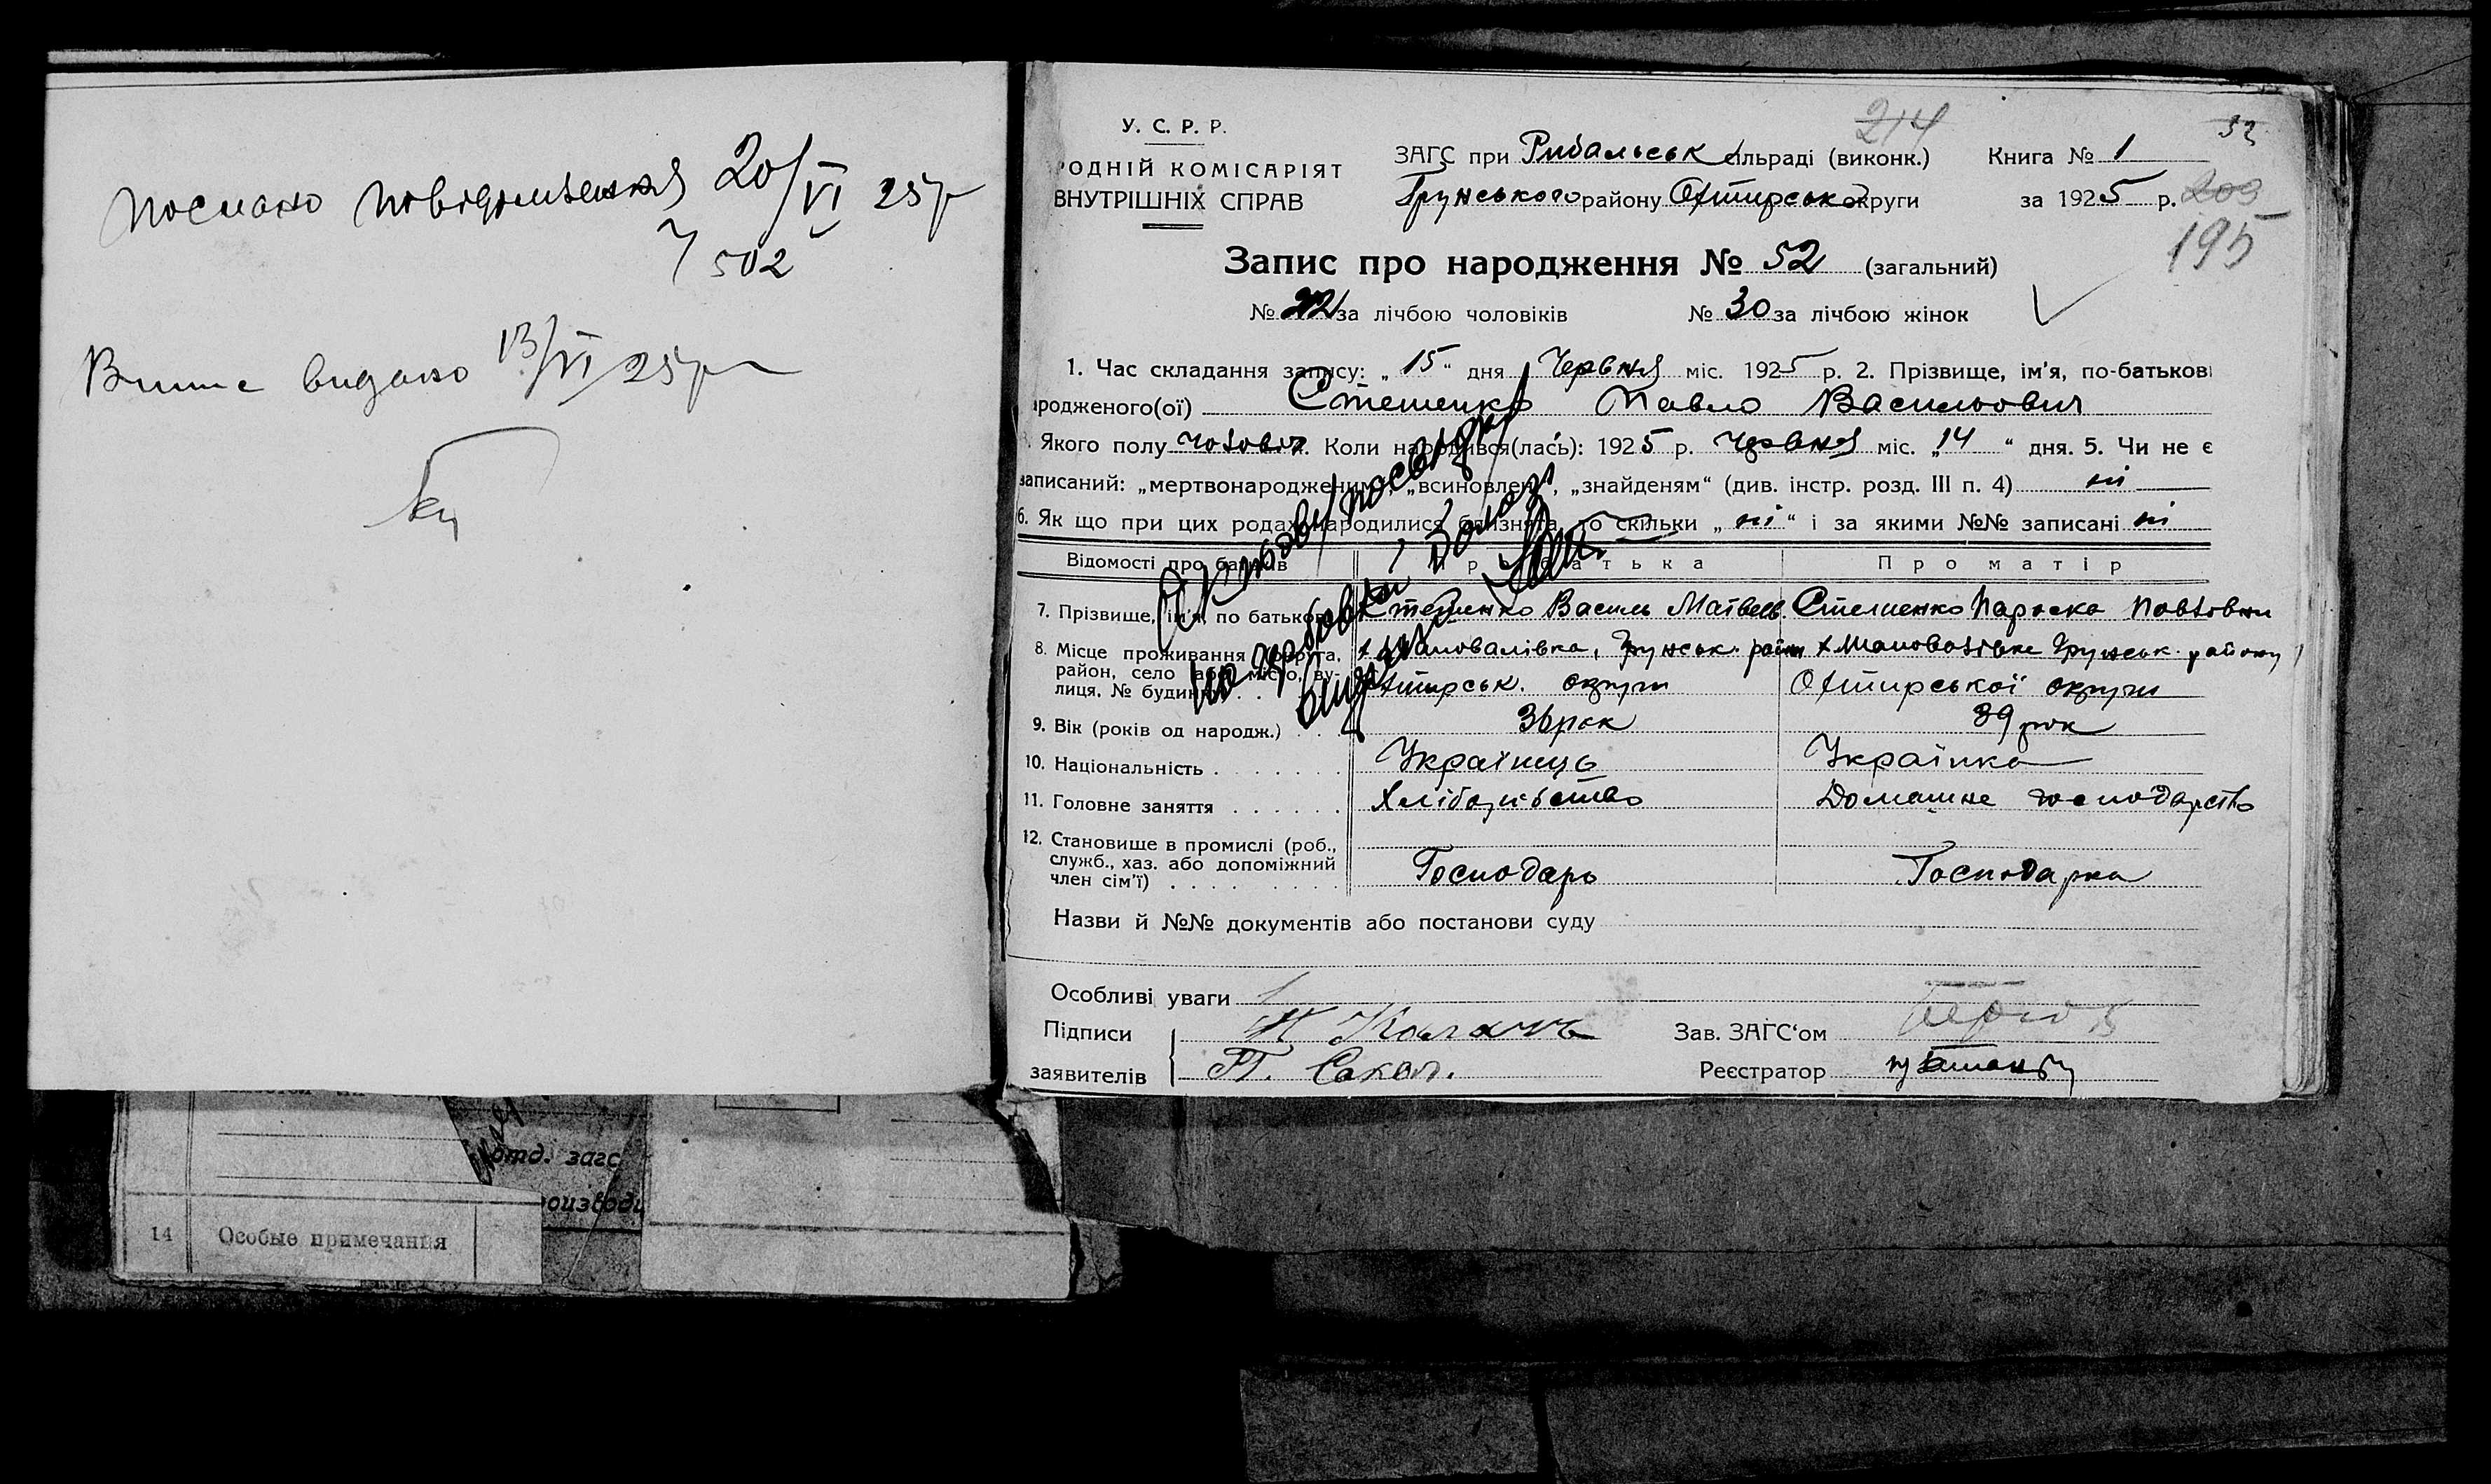 Послано повідомлення 20/VI 25р
502
Випис видано 13/VI 25р
214
52
У. С. Р. Р.
РОДНІЙ КОМІСАРІЯТ
ВНУТРІШНІХ СПРАВ
ЗАГС при Рибальськ сільраді (виконк.) Книга № 1
Грунського району Охтирської округи за 1925 р. 203
195
Запис про народження № 52 (загальний)
№ 22 за лічбою чоловіків № 30 за лічбою жінок
1. Час складання запису: „15“ дня Червня міс. 1925 р. 2. Прізвище, ім'я, по-батькові
ародженого(ої) Стешенко Павло Васильович
Якого полу чоловіч. Коли народився(лась): 1925 р. Червня міс. „14“ дня. 5. Чи не є
записаний: „мертвонародженим“, „всиновлен“, „знайденям“ (див. інстр. розд. III п. 4) ні
6. Як що при цих родах народилися близнята, то скільки „ні“ і за якими №№ записані ні
Відомості про батьків Про батька Про матір
7. Прізвище, ім'я, по батькові Стешенко Василь Матвеев. Стешенко Параска Павловни
8. Місце проживання округа, х Шаповалівка, Грунськ. району х Шаповалівка Грунськ. району
район, село або місто, ву-
лиця, № будинку . . Охтирськ. округи Охтирської округи
9. Вік (років од народж.) . . . 36 рок 39 рок
10. Національність . . . . . . . Українець Українка
11. Головне заняття . . . . . . Хліборобство Домашнє господарство
12. Становище в промислі (роб.,
служб., хаз. або допоміжний Господарь Господарка
член сім'ї) . . . . . . . . .
Назви й №№ документів або постанови суду
Особливі уваги
Підписи Зав. ЗАГС'ом
заявителів П. Сокол. Реєстратор
отд. загс
оизводи
14 Особые примечания